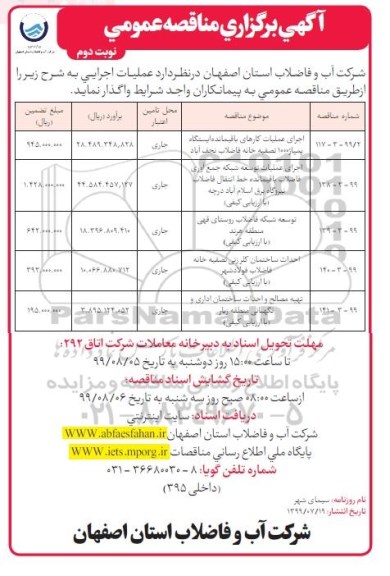 آگهي برگزاري مناقصه عمومي
نوبت دوم
شركت آب و فاضلاب استان اصفهان
شركت آب و فاضلاب استان اصفهان درنظردارد عمليات اجرايي به شرح زير را
ازطريق مناقصه عمومي به پيمانكاران واجد شرايط واگذار نمايد.
شماره مناقصه موضوع مناقصه محل تامین اعتبار برآورد (ریال) مبلغ تضمین (ریال)
۹۹/۲-۳-۱۱۷ اجرای عملیات کارهای باقیمانده ایستگاه پمپاژ ۱۰۰۰ تصفیه خانه فاضلاب نجف آباد جاری ۲۸.۴۸۹.۳۴۸.۸۲۸ ۹۴۵.۰۰۰.۰۰۰
۹۹-۳-۱۳۸ اجرای عملیات توسعه شبکه جمع آوری فاضلاب باقیمانده خط انتقال فاضلاب نیروگاه برق اسلام آباد درچه (با ارزیابی کیفی) جاری ۴۴.۵۸۴.۴۵۷.۱۴۷ ۱.۴۳۸.۰۰۰.۰۰۰
۹۹-۳-۱۳۹ توسعه شبکه فاضلاب روستای قهی منطقه هرند (با ارزیابی کیفی) جاری ۱۸.۳۹۶.۸۰۹.۴۱۰ ۶۴۲.۰۰۰.۰۰۰
۹۹-۳-۱۴۰ احداث ساختمان کلرزنی تصفیه خانه فاضلاب فولادشهر (با ارزیابی کیفی) جاری ۱۰.۰۶۶.۸۸۰.۷۱۳ ۳۹۳.۰۰۰.۰۰۰
۹۹-۳-۱۴۱ تهیه مصالح و احداث ساختمان اداری و نگهبانی منطقه (با ارزیابی کیفی) جاری ۳.۸۹۵.۱۲۴.۰۵۲ ۱۹۵.۰۰۰.۰۰۰
مهلت تحويل اسناد:به دبيرخانه معاملات شركت اتاق ۲۹۲:
تا ساعت ۱۵:۰۰ روز دوشنبه به تاريخ ۹۹/۰۸/۰۵
تاريخ گشايش اسناد مناقصه:
ازساعت ۰۸:۰۰ صبح روز سه شنبه به تاريخ ۹۹/۰۸/۰۶
دريافت اسناد: سايت اينترنتي
شركت آب و فاضلاب استان اصفهان www.abfaesfahan.ir
پايگاه ملي اطلاع رساني مناقصات www.iets.mporg.ir
شماره تلفن گويا: ۸-۳۶۶۸۰۰۳۰-۰۳۱
(داخلي ۳۹۵)
نام روزنامه: سیمای شهر
تاریخ انتشار: ۱۳۹۹/۰۷/۱۹
شركت آب و فاضلاب استان اصفهان
ParsNamadData
پایگاه اطلاع رسانی مناقصه و مزایده
۰۲۱-۸۸۳۴۹۶۷۰-۵